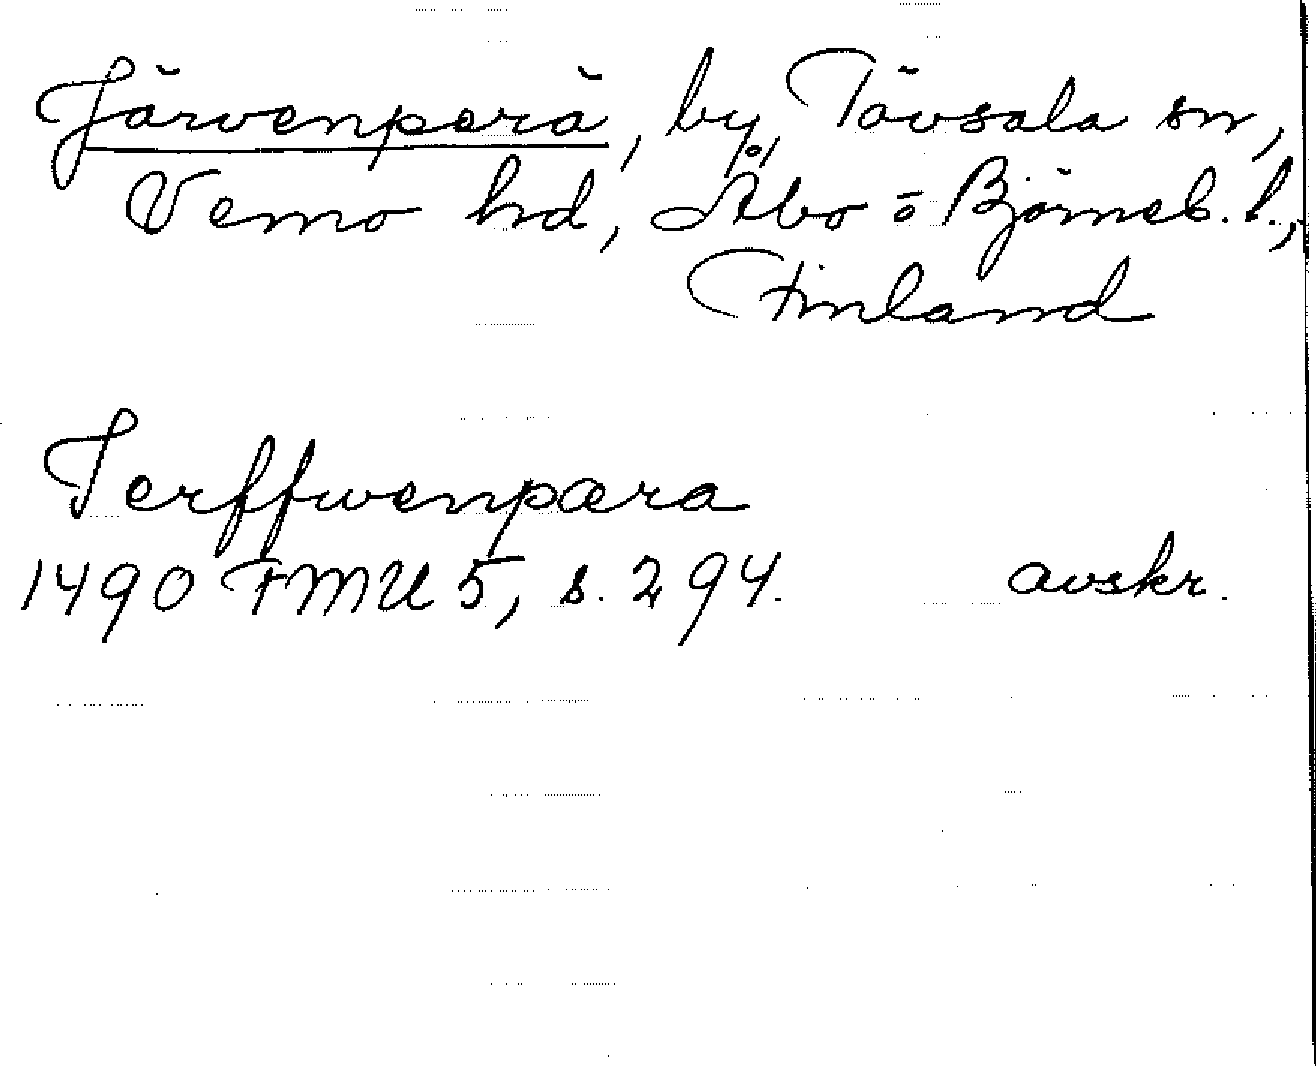 Järvenperä, by, Tövsala sn,
Vemo hd, Åbo o Björneb. l.,
Finland
Jerffwenpæra
1490 FMU 5, s. 294. avskr.